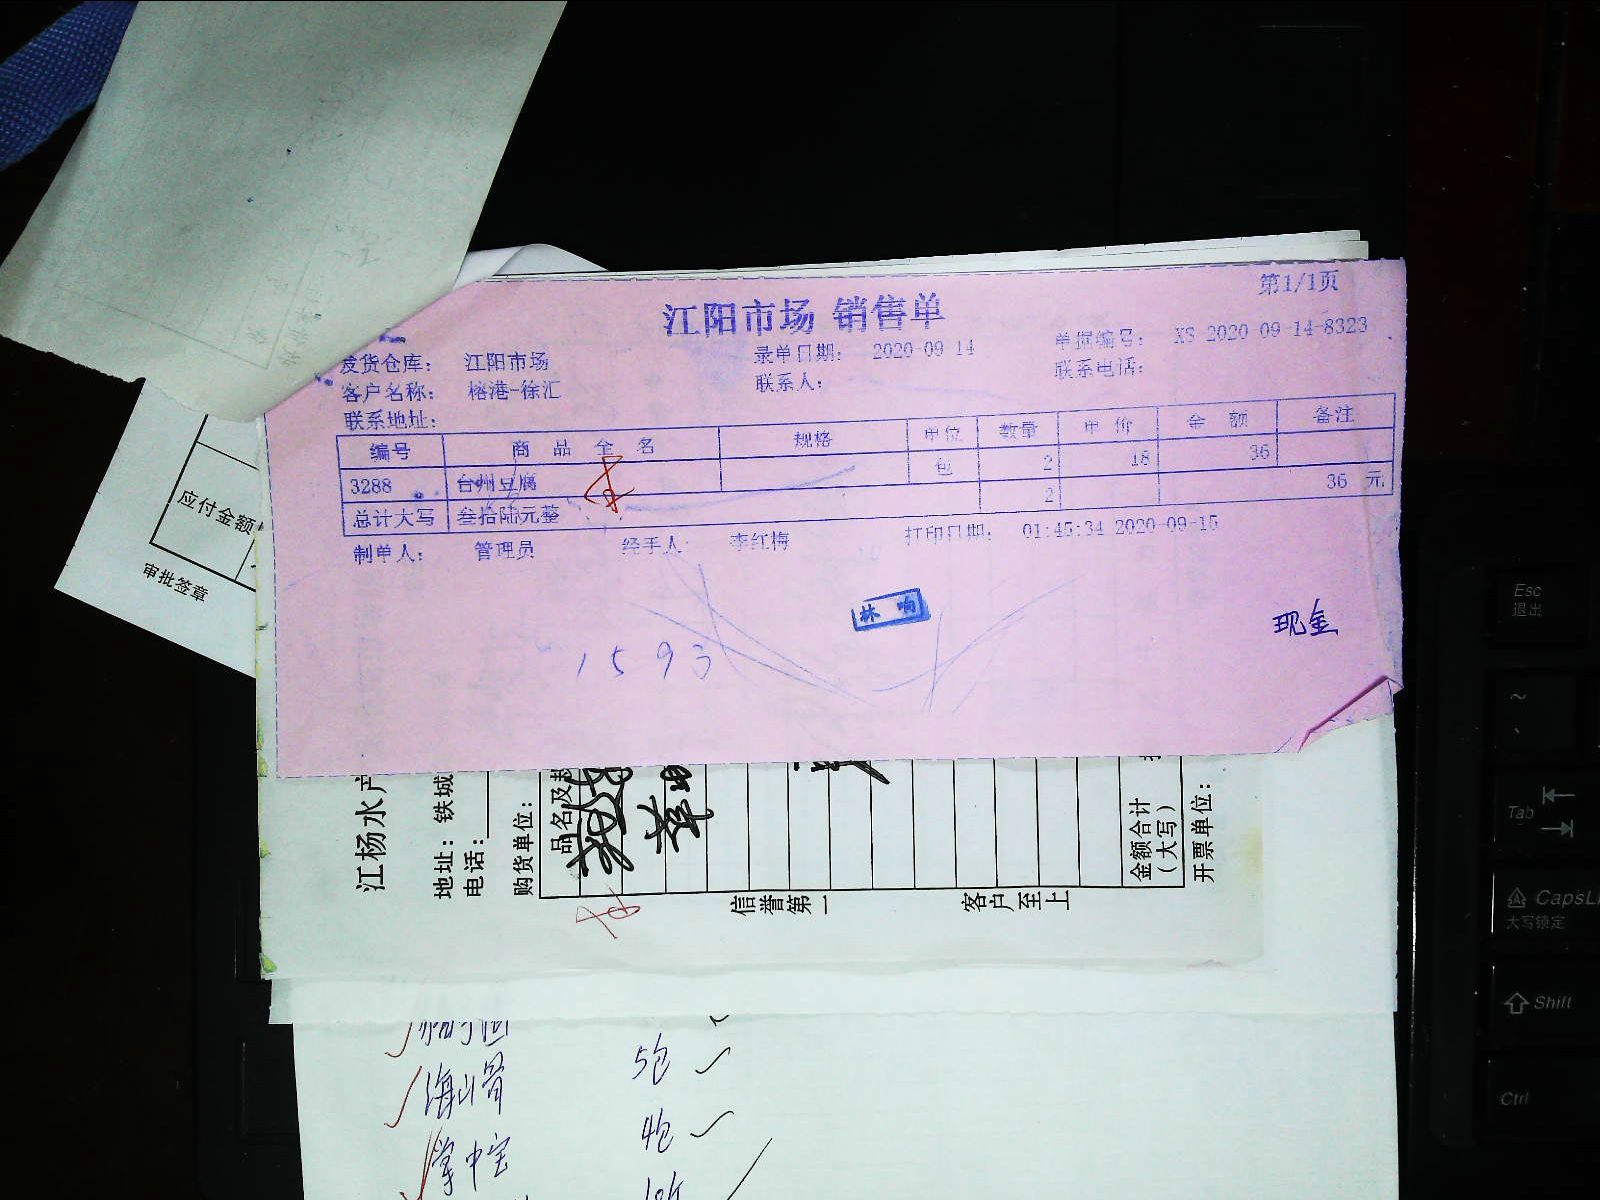 第1/1页
江阳市场 销售单
发货仓库： 江阳市场 录单日期： 2020-09-14 单据编号： XS-2020-09-14-8323
客户名称： 榕港-徐汇 联系人： 联系电话：
联系地址：
编号 商品全名 规格 单位 数量 单价 金额 备注
3288 台州豆腐 包 2 18 36
总计大写 叁拾陆元整 2 36 元
制单人： 管理员 经手人： 李红梅 打印日期： 01:45:34 2020-09-15
林 响
现金
1593
应付金额
审批签章
江杨水产
地址：铁城
电话：
购货单位：
品名及规
信誉第一
客户至上
金额合计
（大写）
开票单位：
5包
海山骨
掌中宝 4包
Esc
退出
Tab
CapsL
大写锁定
Shift
Ctrl